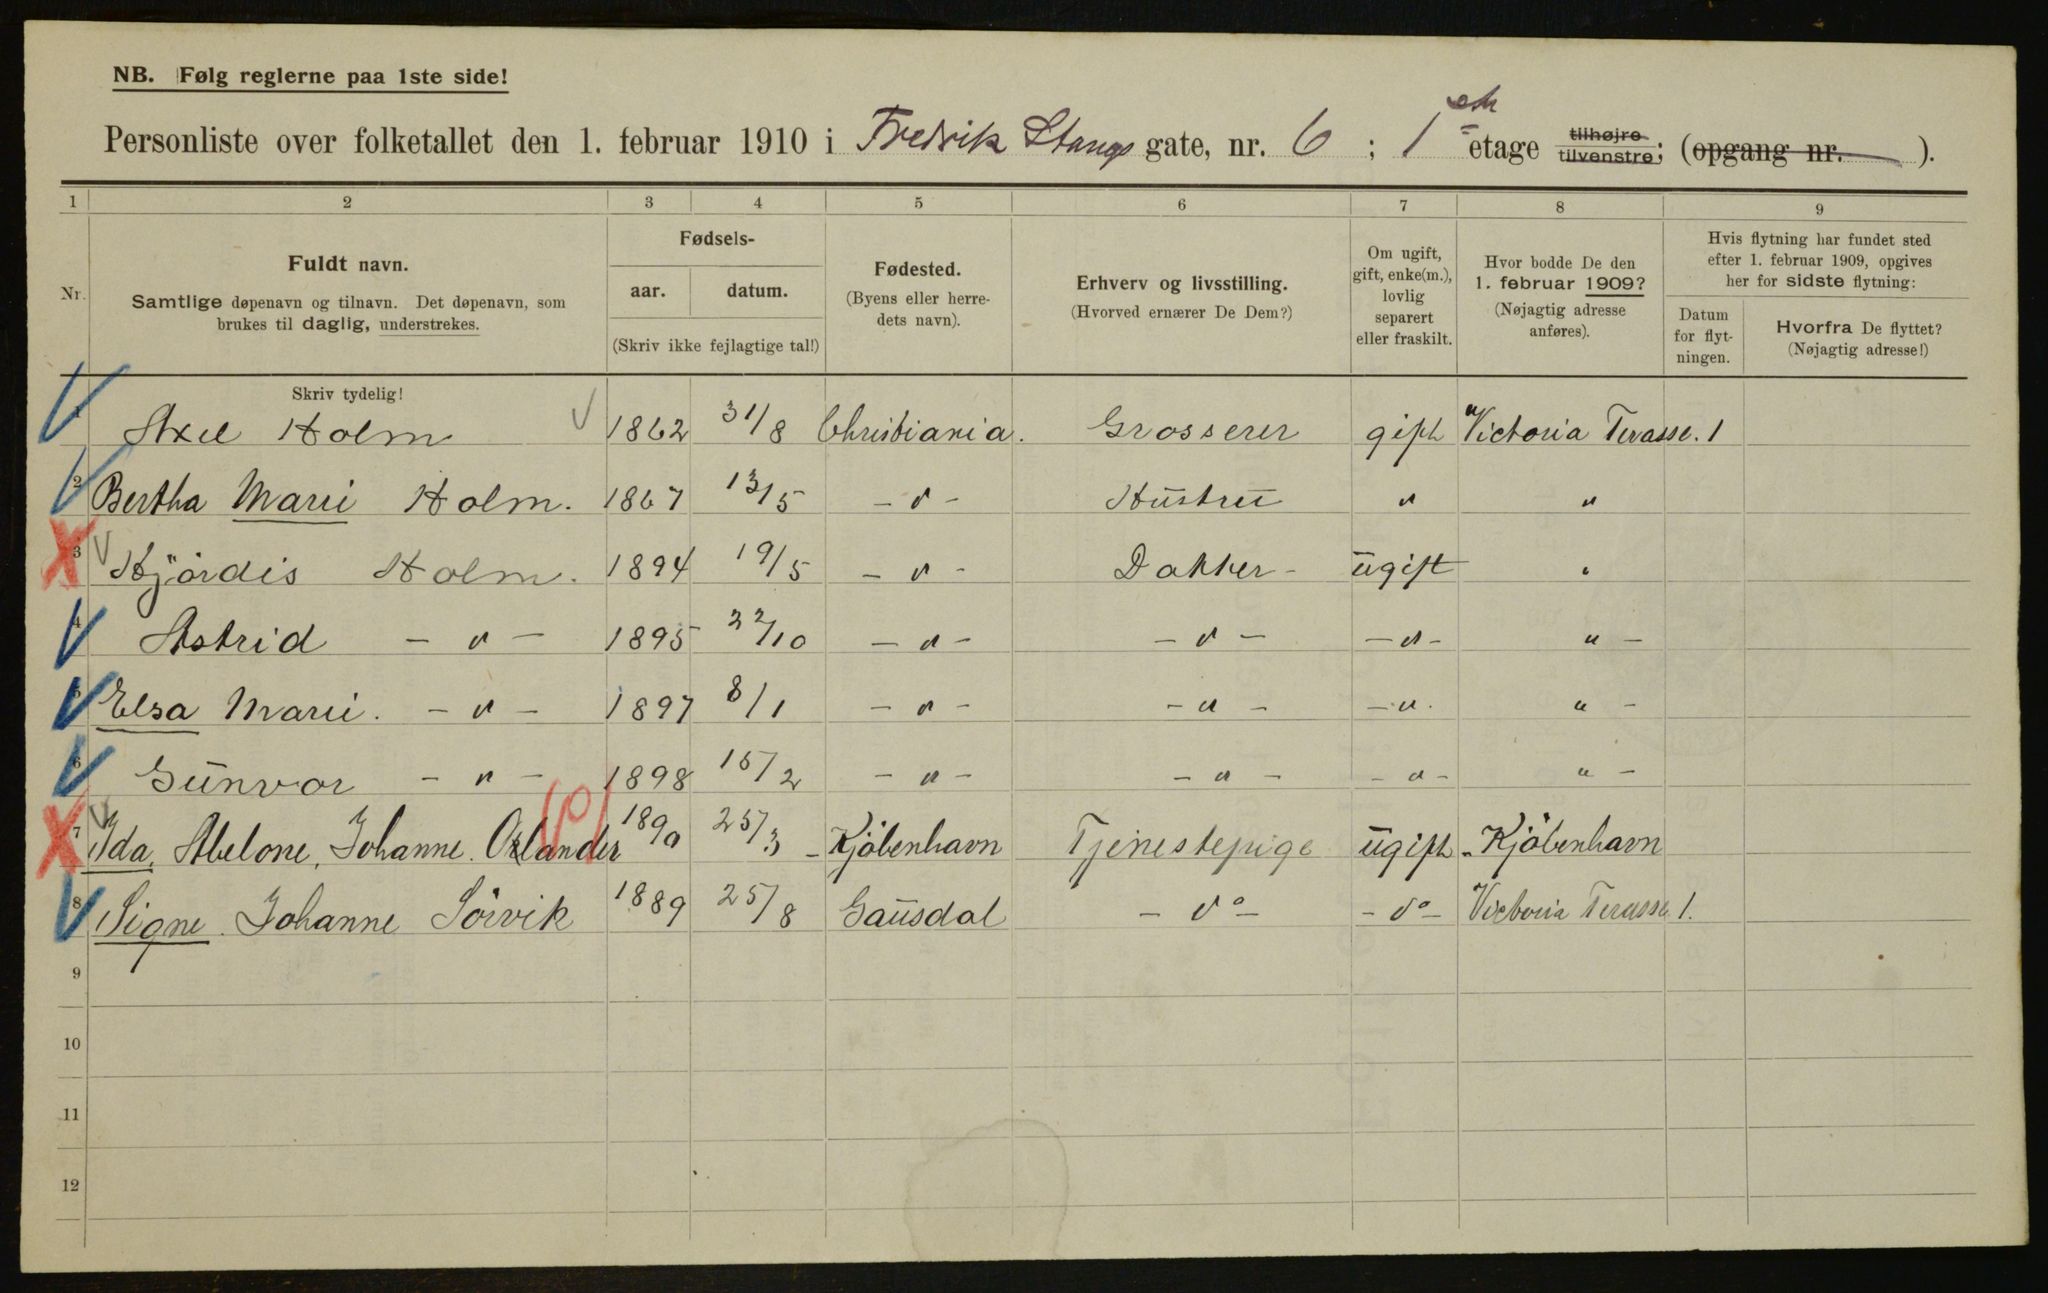 NB. Følg reglerne paa 1ste side!
Personliste over folketallet den 1. februar 1910 i Fredrik Stangs gate, nr. 6 ; 1 etage tilhøjre tilvenstre; (opgang nr. ).
1 2 3 4 5 6 7 8 9
Nr.
Fuldt navn.
Samtlige døpenavn og tilnavn. Det døpenavn, som
brukes til daglig, understrekes.
Fødsels-
aar. datum.
(Skriv ikke fejlagtige tal!)
Fødested.
(Byens eller herre-
dets navn).
Erhverv og livsstilling.
(Hvorved ernærer De Dem?)
Om ugift,
gift, enke(m.),
lovlig
separert
eller fraskilt.
Hvor bodde De den
1. februar 1909?
(Nøjagtig adresse
anføres).
Hvis flytning har fundet sted
efter 1. februar 1909, opgives
her for sidste flytning:
Datum
for flyt-
ningen.
Hvorfra De flyttet?
(Nøjagtig adresse!)
Skriv tydelig!
1 Axel Holm 1862 31/8 Christiania. Grosserer gift Victoria Terasse. 1
2 Bertha Marie Holm. 1867 13/5 - " - Hustru " "
3 Hjördis Holm. 1894 19/5 - " - Dotter - ugift "
4 Astrid - " - 1895 22/10 - " - - " - - " - " -
5 Elsa Marie. - " - 1897 8/1 - " - - " - - " . " -
6 Gunvor - " - 1898 15/2 - " - - " - - " - " -
7 Ida, Abelone, Johanne. Orlander 1890 25/3 - Kjöbenhavn Tjenestepige ugift - Kjöbenhavn
8 Signe Johanne Sörvik 1889 25/8 Gausdal - do - - do - Victoria Terasse 1.
9
10
11
12